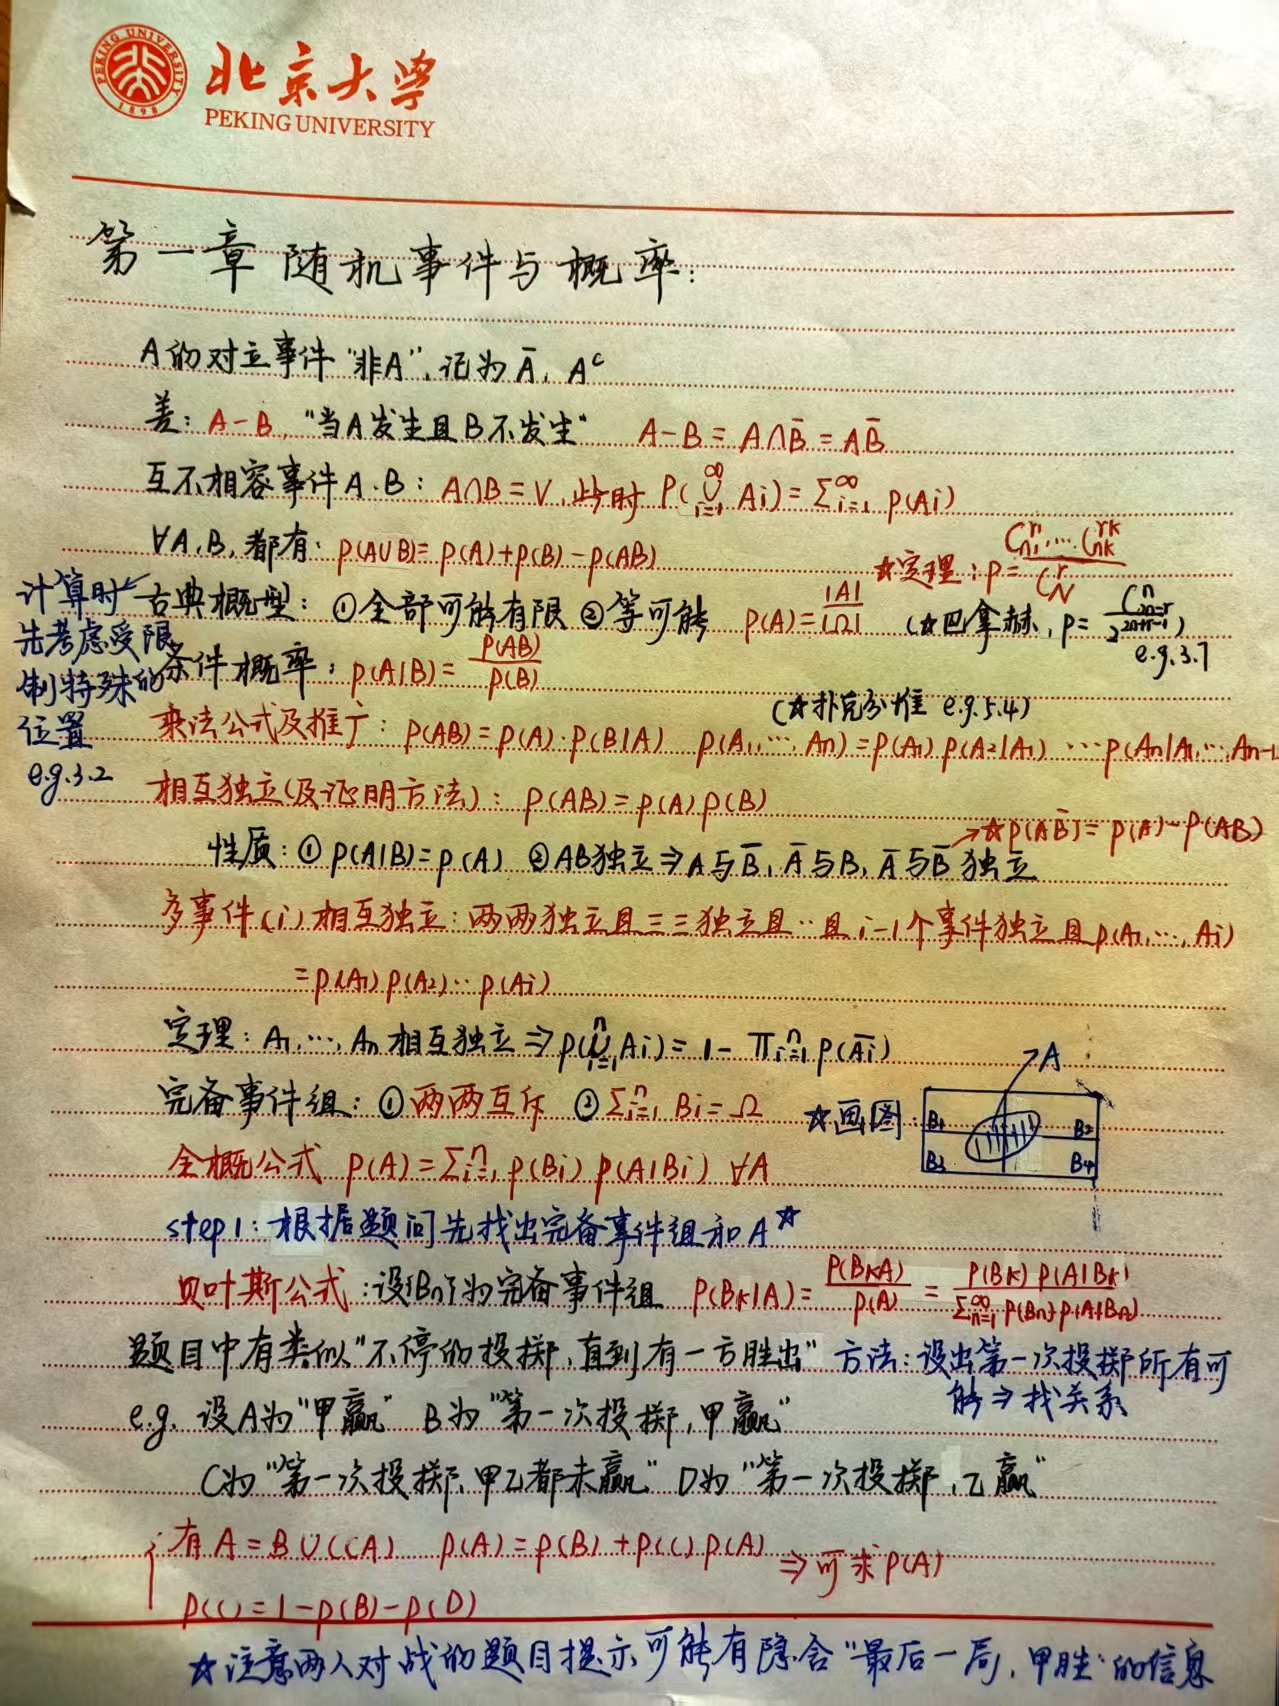 北京大学
PEKING UNIVERSITY
PEKING UNIVERSITY
1898
第一章 随机事件与概率：
A的对立事件"非A"，记为Ā，Aᶜ
差：A-B，"当A发生且B不发生" A-B=A∩B̄=AB̄
互不相容事件A.B：A∩B=V，此时 P(∪_{i=1}^∞ Ai)=Σ_{i=1}^∞ P(Ai)
∀A,B,都有：P(A∪B)=P(A)+P(B)-P(AB)
☆定理：P=C_{n1}^{r1}…C_{nk}^{rk}/C_N^r
计算时先考虑受限制特殊的位置 e.g.3.2
古典概型：①全部可能有限 ②等可能 P(A)=|A|/|Ω| (☆巴拿赫，P=C_{2n-r}^n/2^{2n-r-1}) e.g.3.7
条件概率：P(A|B)=P(AB)/P(B)
(☆扑克分堆 e.g.5.4)
乘法公式及推广：P(AB)=P(A)·P(B|A) P(A1,…,An)=P(A1)P(A2|A1)…P(An|A1,…,An-1
相互独立(及证明方法)：P(AB)=P(A)P(B)
→☆P(AB̄)=P(A)-P(AB)
性质：①P(A|B)=P(A) ②AB独立⇒A与B̄，Ā与B，Ā与B̄独立
多事件(i)相互独立：两两独立且三三独立且…且i-1个事件独立且P(A1,…,Ai)
=P(A1)P(A2)…P(Ai)
定理：A1,…,An相互独立⇒P(∪_{i=1}^n Ai)=1-Π_{i=1}^n P(Āi)
完备事件组：①两两互斥 ②Σ_{i=1}^n Bi=Ω ☆画图：
A
B1 B2
B3 B4
全概公式 P(A)=Σ_{i=1}^n P(Bi)P(A|Bi) ∀A
step1：根据题问先找出完备事件组和A☆
贝叶斯公式：设{Bn}为完备事件组 P(Bk|A)=P(BkA)/P(A)=P(Bk)P(A|Bk)/Σ_{n=1}^∞ P(Bn)P(A|Bn)
题目中有类似"不停的投掷，直到有一方胜出" 方法：设出第一次投掷所有可
能⇒找关系
e.g. 设A为"甲赢" B为"第一次投掷，甲赢"
C为"第一次投掷，甲乙都未赢" D为"第一次投掷，乙赢"
有A=B∪(CA) P(A)=P(B)+P(C)P(A)
⇒可求P(A)
P(C)=1-P(B)-P(D)
☆注意两人对战的题目提示可能有隐含"最后一局，甲胜"的信息